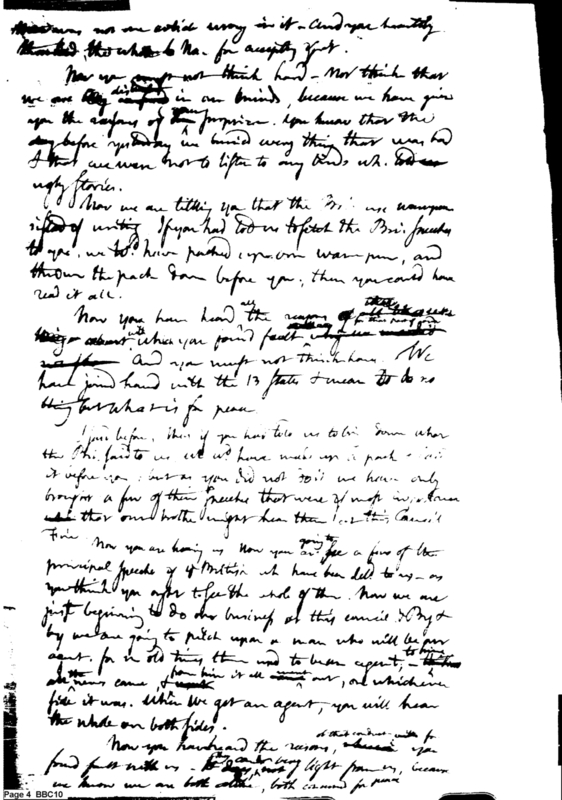 was not one evil wrong in it - And you heartily
thanked, the whole No. for accepting of it.
Now you must not think hard - Nor think that
we are disturbed in our minds, because we have given
you the reasons of our surprize. You know that the
day before yesterday we buried every thing that was bad
& that we were not to listen to any birds wh. told us
ugly stories.
Now we are telling you that the Bri. use wampum
instead of writing. If you had told us to fetch the Bri. speeches
to you, we wd. have packed up our wampum, and
thrown the pack down before you; then you could have
read it all.
Now you have heard all the reasons
with which you found fault
And you must not think hard. We
have joined hand with the 13 States & mean to do no
thing but what is for peace.
I said before, that if you had told us to bring down what
the Bri. said to us we wd. have made up a pack &
it before you; but as you did not do it we have only
brought a few of their speeches that were of most importance
that our brothr. might hear them at this Council
Fire.
Now you are hearing us Now you are going to see a few of the
principal speeches of ye British wh. have been deld. to us - as
you think you ought to see the whole of them. Now we are
just beginning to do our business at this council & By &
by we are going to pitch upon a man who will be our
agent. for in old times there used to be an agent, - to bring
all the news came, & him it all out, on whichever
side it was. When we get an agent, you will hear
the whole on both sides.
Now you have heard the reasons, of that conduct with for you
found fault with us - very light from us, because
we know we are both , both concerned for peace
Page 4 BBC10